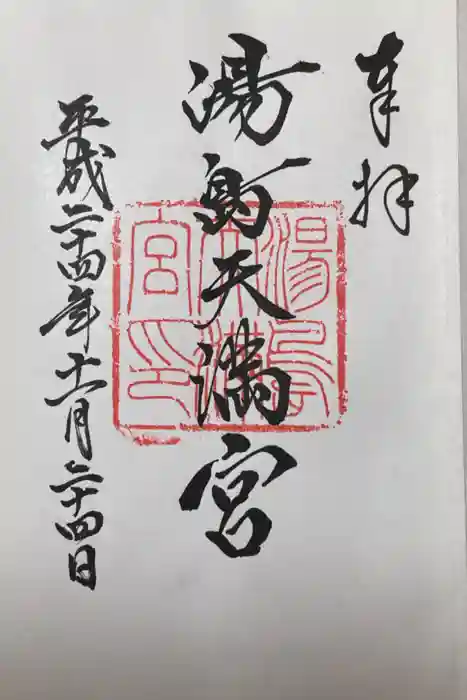 奉拝
湯島天満宮
湯島天満宮印
平成二十四年十一月二十四日